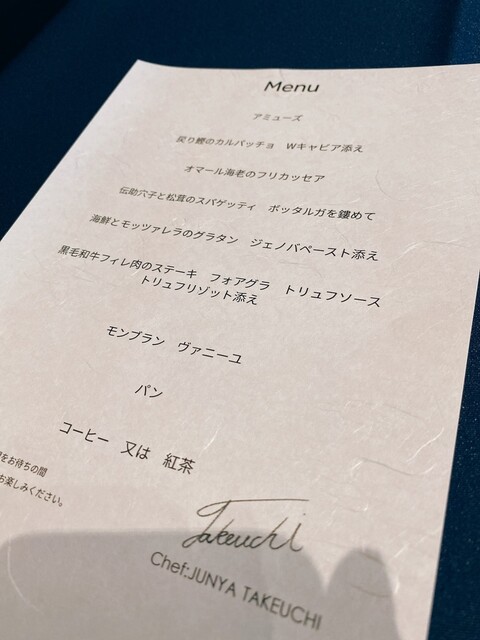 Menu
アミューズ
戻り鰹のカルパッチョ Wキャビア添え
オマール海老のフリカッセア
伝助穴子と松茸のスパゲッティ ボッタルガを鏤めて
海鮮とモッツァレラのグラタン ジェノバペースト添え
黒毛和牛フィレ肉のステーキ フォアグラ トリュフソース
トリュフリゾット添え
モンブラン ヴァニーユ
パン
コーヒー 又は 紅茶
をお待ちの間
お楽しみください。
Takeuchi
Chef:JUNYA TAKEUCHI